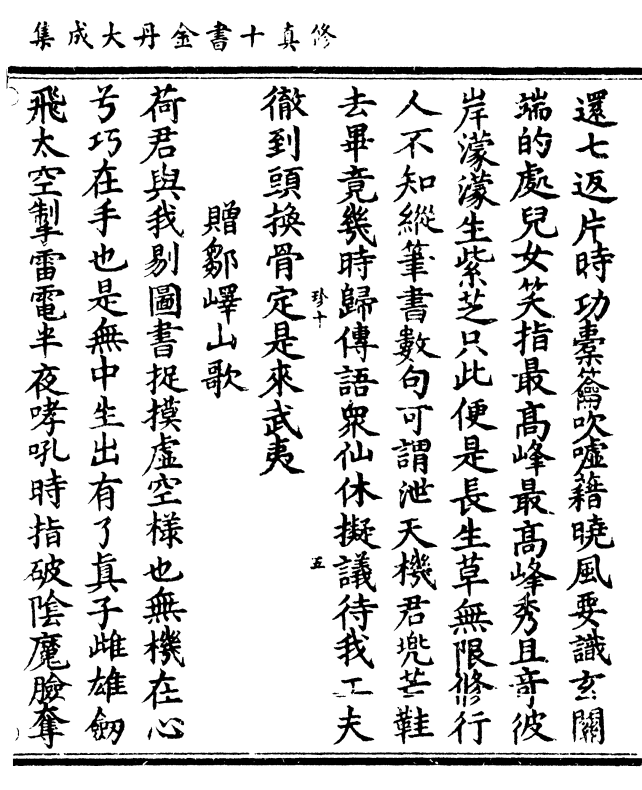 修真十書金丹大成集
還七返片時功橐籥吹噓藉曉風要識玄關
端的處兒女笑指最髙峰最髙峰秀且竒彼
岸濛濛生紫芝只此便是長生草無限修行
人不知縱筆書數句可謂泄天機君兠芒鞋
去畢竟幾時歸傳語衆仙休擬議待我工夫
珍十
五
徹到頭換骨定是來武夷
贈鄒嶧山歌
荷君與我剔圖書捉摸虛空様也無機在心
兮巧在手也是無中生出有了眞子雌雄劒
飛太空掣雷電半夜哮吼時指破陰魔臉奪